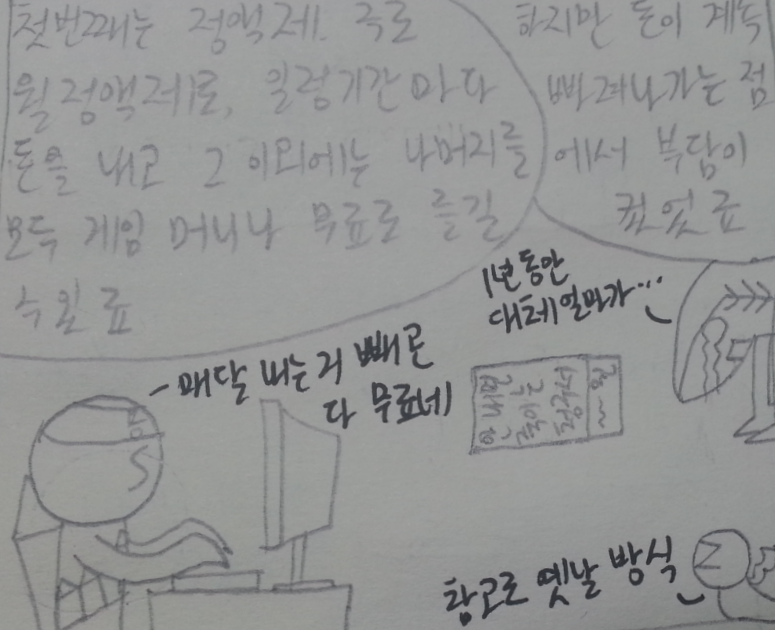 첫번째는 정액제. 즉로
월정액제로, 일정기간마다
돈을 내고 그 이외에는 나머지를
모두 게임 머니나 무료로 즐길
수 있 료
하지만 돈이 계속
빠져나가는 점
에서 부담이
컸었 료
1년동안
대체 얼마가…
매달 내는거 빼곤
다 무료네
참고로 옛날 방식